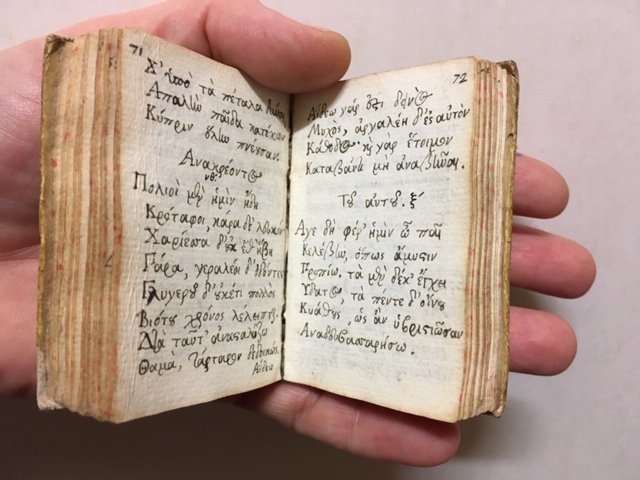 71
Χ' ὑπὸ τὰ πέταλα
Απαλὴν παῖδα κατεῖχον
Κύπριν ὅλην πνέουσαν.
Ανακρέοντος
νθ.
Πολιοὶ μὲν ἡμὶν ἤδη
Κρόταφοι, κάρα δὲ λευκὸν
Χαρίεσσα δ' οὐκ ἔθ' ἥβη
Πάρα, γεραλέοι δ' ὀδόντες
Γλυκεροῦ δ' οὐκέτι πολλὸς
Βιότου χρόνος λέλειπτ.
Διὰ ταῦτ' ἀνασταλύζω
Θαμὰ, τάρταρον δεδοικώς.
Αΐδεω
72
Αΐδεω γάρ ἐστι δεινὸς
Μυχὸς, ἀργαλέη δ' ἐς αὐτὸν
Κάθοδος· καὶ γὰρ ἕτοιμον
Καταβάντι μὴ ἀναβῆναι.
Τοῦ αὐτοῦ. ξ´
Αγε δὴ φέρ' ἡμὶν ὦ παῖ
Κελέβην, ὅπως ἄμυστιν
Προπίω. τὰ μὲν δέκ' ἐγχέας
Ὕδατος, τὰ πέντε δ' οἴνου
Κυάθους, ὡς ἂν